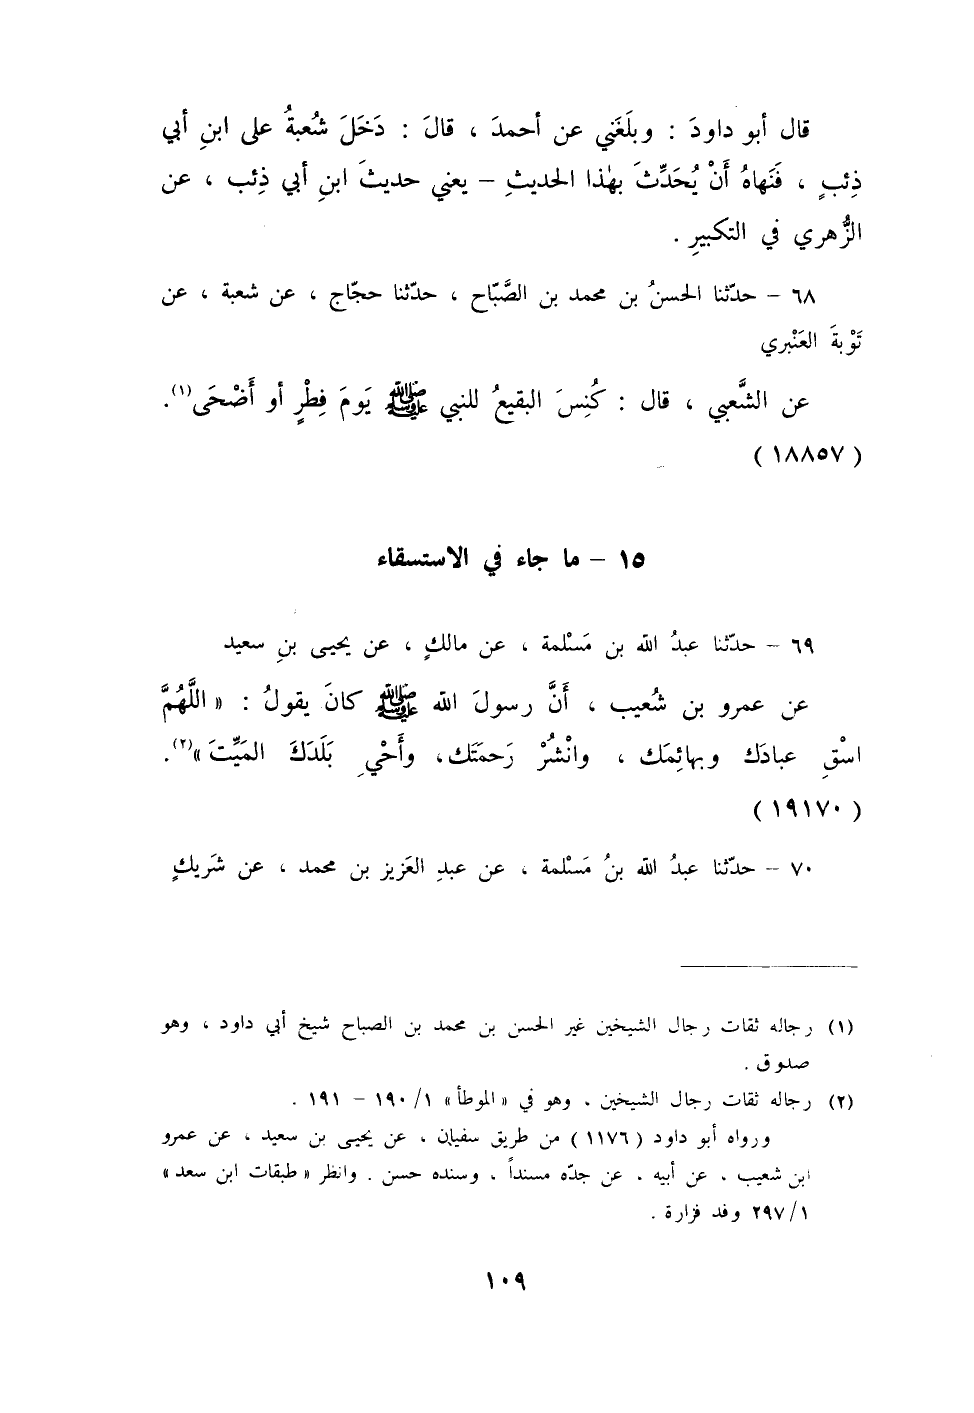 قال أبو داودَ : وبلَغَني عن أحمدَ ، قالَ : دَخَلَ شُعبةُ على ابنِ أبي
ذِئبٍ ، فَنَهاهُ أَنْ يُحَدِّثَ بهٰذا الحديثِ – يعني حديثَ ابنِ أبي ذِئب ، عن
الزُّهري في التكبيرِ .
٦٨ – حدّثنا الحسنُ بن محمد بن الصَّبّاح ، حدّثنا حجّاج ، عن شعبة ، عن
تَوْبةَ العَنْبري
عن الشَّعبي ، قال : كُنِسَ البقيعُ للنبي ﷺ يَومَ فِطْرٍ أو أَضْحَى(١).
( ١٨٨٥٧ )
١٥ – ما جاء في الاستسقاء
٦٩ – حدّثنا عبدُ الله بن مَسْلمة ، عن مالكٍ ، عن يحيى بنِ سعيد
عن عمرو بن شُعيب ، أَنَّ رسولَ الله ﷺ كانَ يقولُ : « اللَّهُمَّ
اسْقِ عبادَك وبهائِمَك ، وانْشُرْ رَحمتَك، وأَحْيِ بَلَدَكَ المَيِّتَ »(٢).
( ١٩١٧٠ )
٧٠ – حدّثنا عبدُ الله بنُ مَسْلمة ، عن عبدِ العَزيز بن محمد ، عن شَريكٍ
(١) رجاله ثقات رجال الشيخين غير الحسن بن محمد بن الصباح شيخ أبي داود ، وهو
صدوق .
(٢) رجاله ثقات رجال الشيخين . وهو في « الموطأ » ١/ ١٩٠ – ١٩١ .
ورواه أبو داود ( ١١٧٦ ) من طريق سفيان ، عن يحيى بن سعيد ، عن عمرو
ابن شعيب ، عن أبيه . عن جدّه مسنداً ، وسنده حسن . وانظر « طبقات ابن سعد »
١/ ٢٩٧ وفد فزارة .
١٠٩